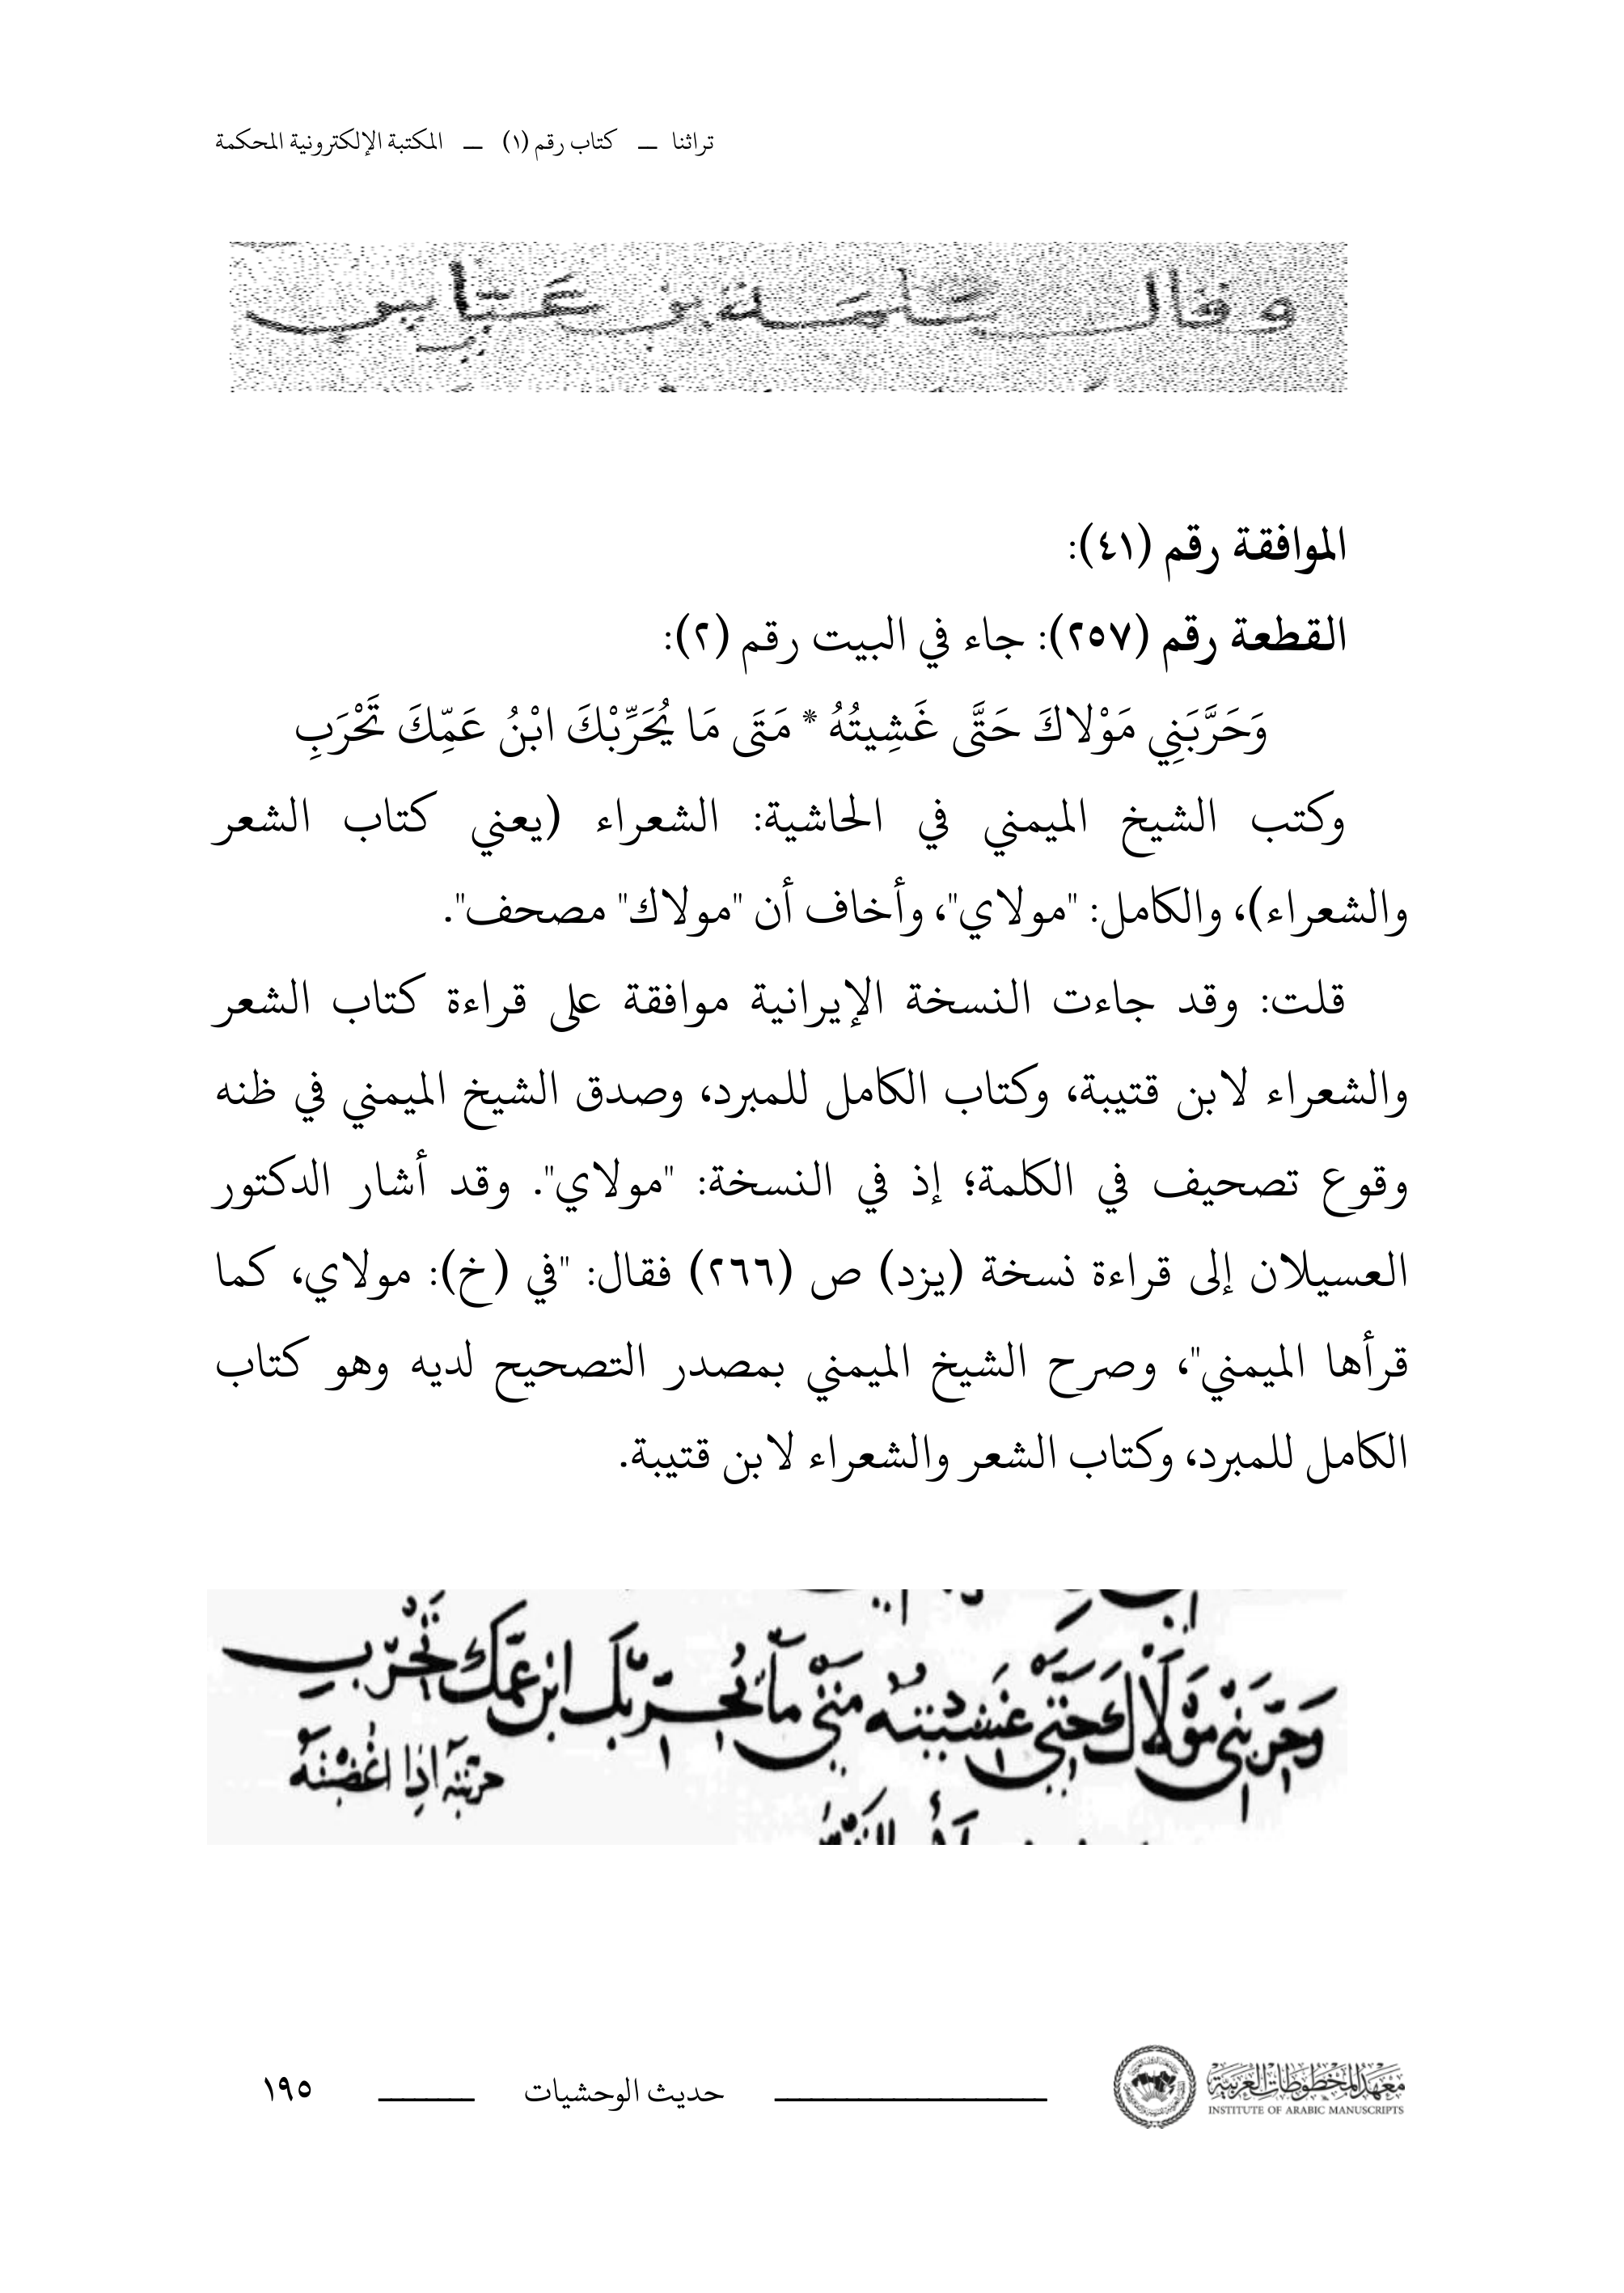 تراثنا — كتاب رقم (١) — المكتبة الإلكترونية المحكمة
وقال سلمة بن عياش
الموافقة رقم (٤١):
القطعة رقم (٢٥٧): جاء في البيت رقم (٢):
وَحَرَّبَنِي مَوْلاكَ حَتَّى غَشِيتُهُ * مَتَى مَا يُحَرِّبْكَ ابْنُ عَمِّكَ تَحْرَبِ
وكتب الشيخ الميمني في الحاشية: الشعراء (يعني كتاب الشعر
والشعراء)، والكامل: "مولاي"، وأخاف أن "مولاك" مصحف".
قلت: وقد جاءت النسخة الإيرانية موافقة على قراءة كتاب الشعر
والشعراء لابن قتيبة، وكتاب الكامل للمبرد، وصدق الشيخ الميمني في ظنه
وقوع تصحيف في الكلمة؛ إذ في النسخة: "مولاي". وقد أشار الدكتور
العسيلان إلى قراءة نسخة (يزد) ص (٢٦٦) فقال: "في (خ): مولاي، كما
قرأها الميمني"، وصرح الشيخ الميمني بمصدر التصحيح لديه وهو كتاب
الكامل للمبرد، وكتاب الشعر والشعراء لابن قتيبة.
وَحَرَّبَنِي مَوْلَاكَ حَتَّى غَشِيتُهُ مَتَى مَا يُحَرِّبْكَ ابْنُ عَمِّكَ تَحْرَبِ
حربته اذا اغضبته
معهد المخطوطات العربية
INSTITUTE OF ARABIC MANUSCRIPTS
حديث الوحشيات
١٩٥